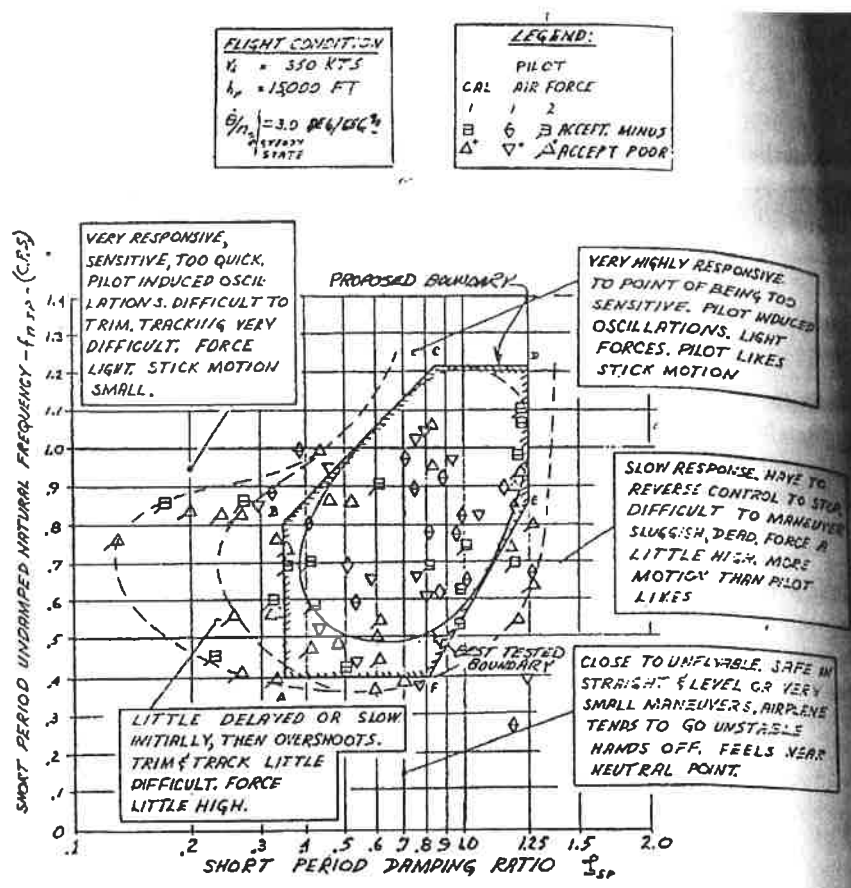 FLIGHT CONDITION
= 350 KTS
= 15,000 FT
= 3.0 DEG/SEC
STEADY
STATE
LEGEND:
PILOT
CAL AIR FORCE
1 1 2
ACCEPT. MINUS
ACCEPT POOR
VERY RESPONSIVE,
SENSITIVE, TOO QUICK.
PILOT INDUCED OSCIL-
LATIONS. DIFFICULT TO
TRIM. TRACKING VERY
DIFFICULT. FORCE
LIGHT. STICK MOTION
SMALL.
PROPOSED BOUNDARY
VERY HIGHLY RESPONSIVE
TO POINT OF BEING TOO
SENSITIVE. PILOT INDUCED
OSCILLATIONS. LIGHT
FORCES. PILOT LIKES
STICK MOTION
SLOW RESPONSE. HAVE TO
REVERSE CONTROL TO STOP.
DIFFICULT TO MANEUVER
SLUGGISH, DEAD. FORCE A
LITTLE HIGH. MORE
MOTION THAN PILOT
LIKES
BEST TESTED
BOUNDARY
CLOSE TO UNFLYABLE. SAFE IN
STRAIGHT & LEVEL OR VERY
SMALL MANEUVERS. AIRPLANE
TENDS TO GO UNSTABLE
HANDS OFF. FEELS NEAR
NEUTRAL POINT.
LITTLE DELAYED OR SLOW
INITIALLY, THEN OVERSHOOTS.
TRIM & TRACK LITTLE
DIFFICULT. FORCE
LITTLE HIGH.
SHORT PERIOD UNDAMPED NATURAL FREQUENCY - fnSP - (C.P.S)
1.4
1.3
1.2
1.1
1.0
.9
.8
.7
.6
.5
.4
.3
.2
.1
0
A
B
C
D
E
F
.1 .2 .3 .4 .5 .6 .7 .8 .9 1.0 1.25 1.5 2.0
SHORT PERIOD DAMPING RATIO ζSP